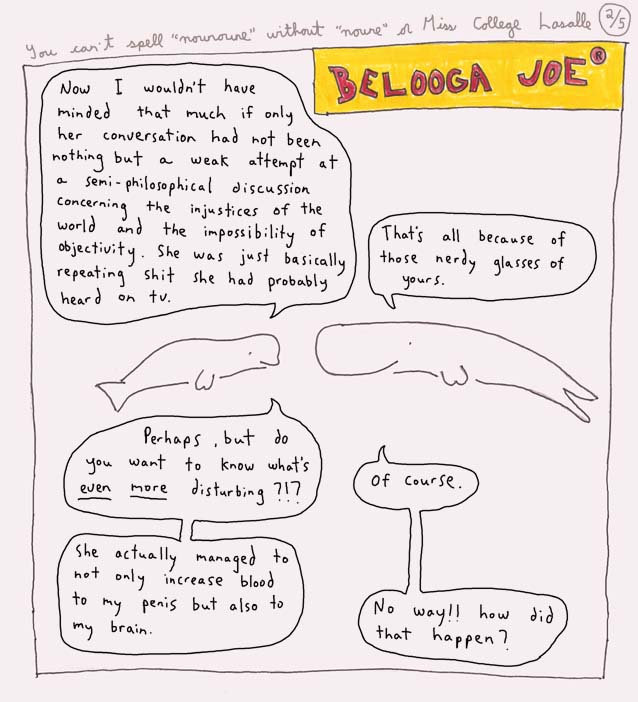 You can't spell "nounoune" without "noune" or Miss College Lasalle 2/5
BELOOGA JOE®
Now I wouldn't have
minded that much if only
her conversation had not been
nothing but a weak attempt at
a semi-philosophical discussion
concerning the injustices of the
world and the impossibility of
objectivity. She was just basically
repeating shit she had probably
heard on tv.
That's all because of
those nerdy glasses of
yours.
Perhaps, but do
you want to know what's
even more disturbing?!?
Of course.
She actually managed to
not only increase blood
to my penis but also to
my brain.
No way!! how did
that happen?